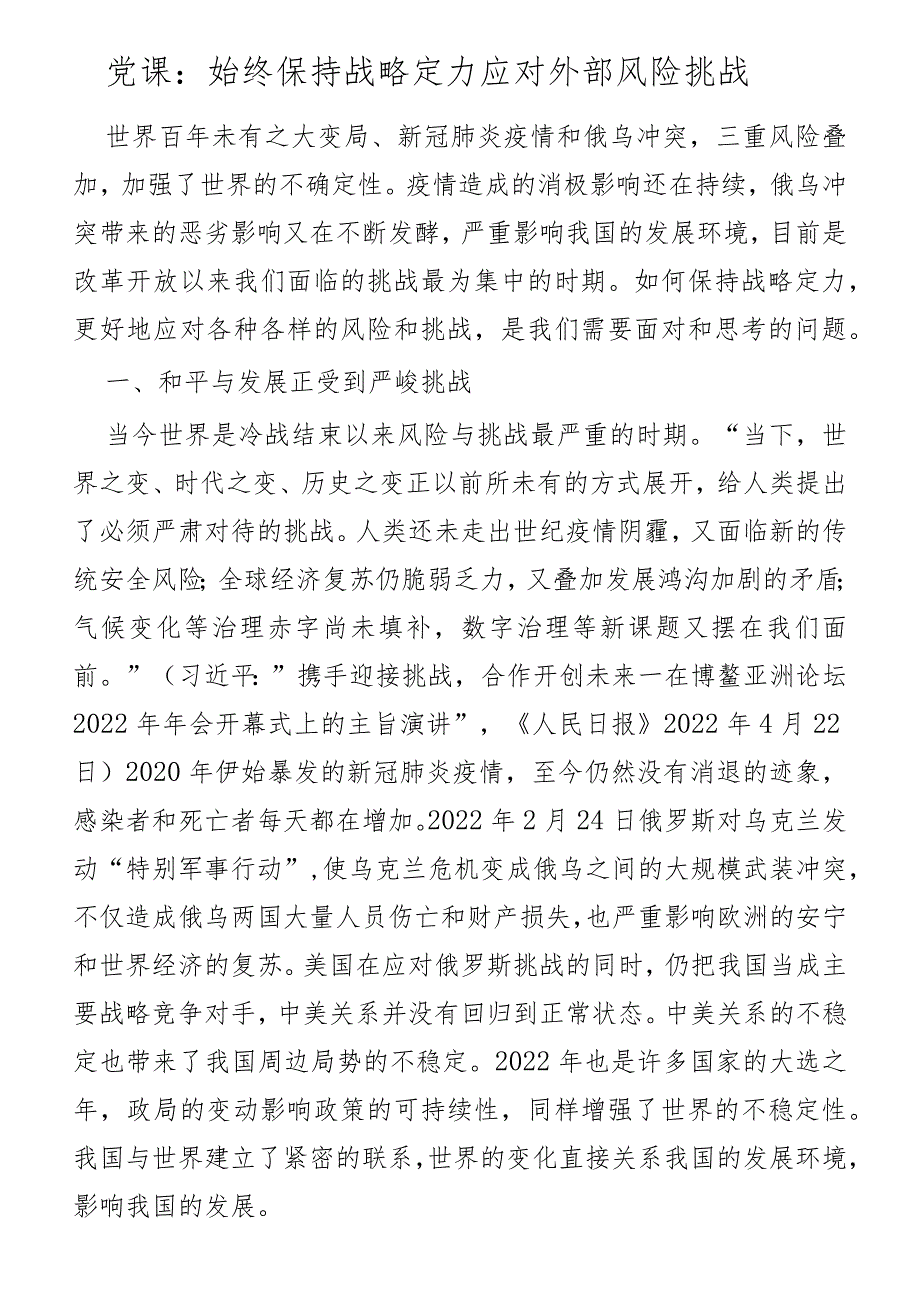 党课：始终保持战略定力应对外部风险挑战
世界百年未有之大变局、新冠肺炎疫情和俄乌冲突，三重风险叠
加，加强了世界的不确定性。疫情造成的消极影响还在持续，俄乌冲
突带来的恶劣影响又在不断发酵，严重影响我国的发展环境，目前是
改革开放以来我们面临的挑战最为集中的时期。如何保持战略定力，
更好地应对各种各样的风险和挑战，是我们需要面对和思考的问题。
一、和平与发展正受到严峻挑战
当今世界是冷战结束以来风险与挑战最严重的时期。“当下，世
界之变、时代之变、历史之变正以前所未有的方式展开，给人类提出
了必须严肃对待的挑战。人类还未走出世纪疫情阴霾，又面临新的传
统安全风险；全球经济复苏仍脆弱乏力，又叠加发展鸿沟加剧的矛盾；
气候变化等治理赤字尚未填补，数字治理等新课题又摆在我们面
前。”（习近平：”携手迎接挑战，合作开创未来一在博鳌亚洲论坛
2022 年年会开幕式上的主旨演讲”，《人民日报》2022 年 4 月 22
日）2020 年伊始暴发的新冠肺炎疫情，至今仍然没有消退的迹象，
感染者和死亡者每天都在增加。2022 年 2 月 24 日俄罗斯对乌克兰发
动“特别军事行动”,使乌克兰危机变成俄乌之间的大规模武装冲突，
不仅造成俄乌两国大量人员伤亡和财产损失，也严重影响欧洲的安宁
和世界经济的复苏。美国在应对俄罗斯挑战的同时，仍把我国当成主
要战略竞争对手，中美关系并没有回归到正常状态。中美关系的不稳
定也带来了我国周边局势的不稳定。2022 年也是许多国家的大选之
年，政局的变动影响政策的可持续性，同样增强了世界的不稳定性。
我国与世界建立了紧密的联系，世界的变化直接关系我国的发展环境，
影响我国的发展。